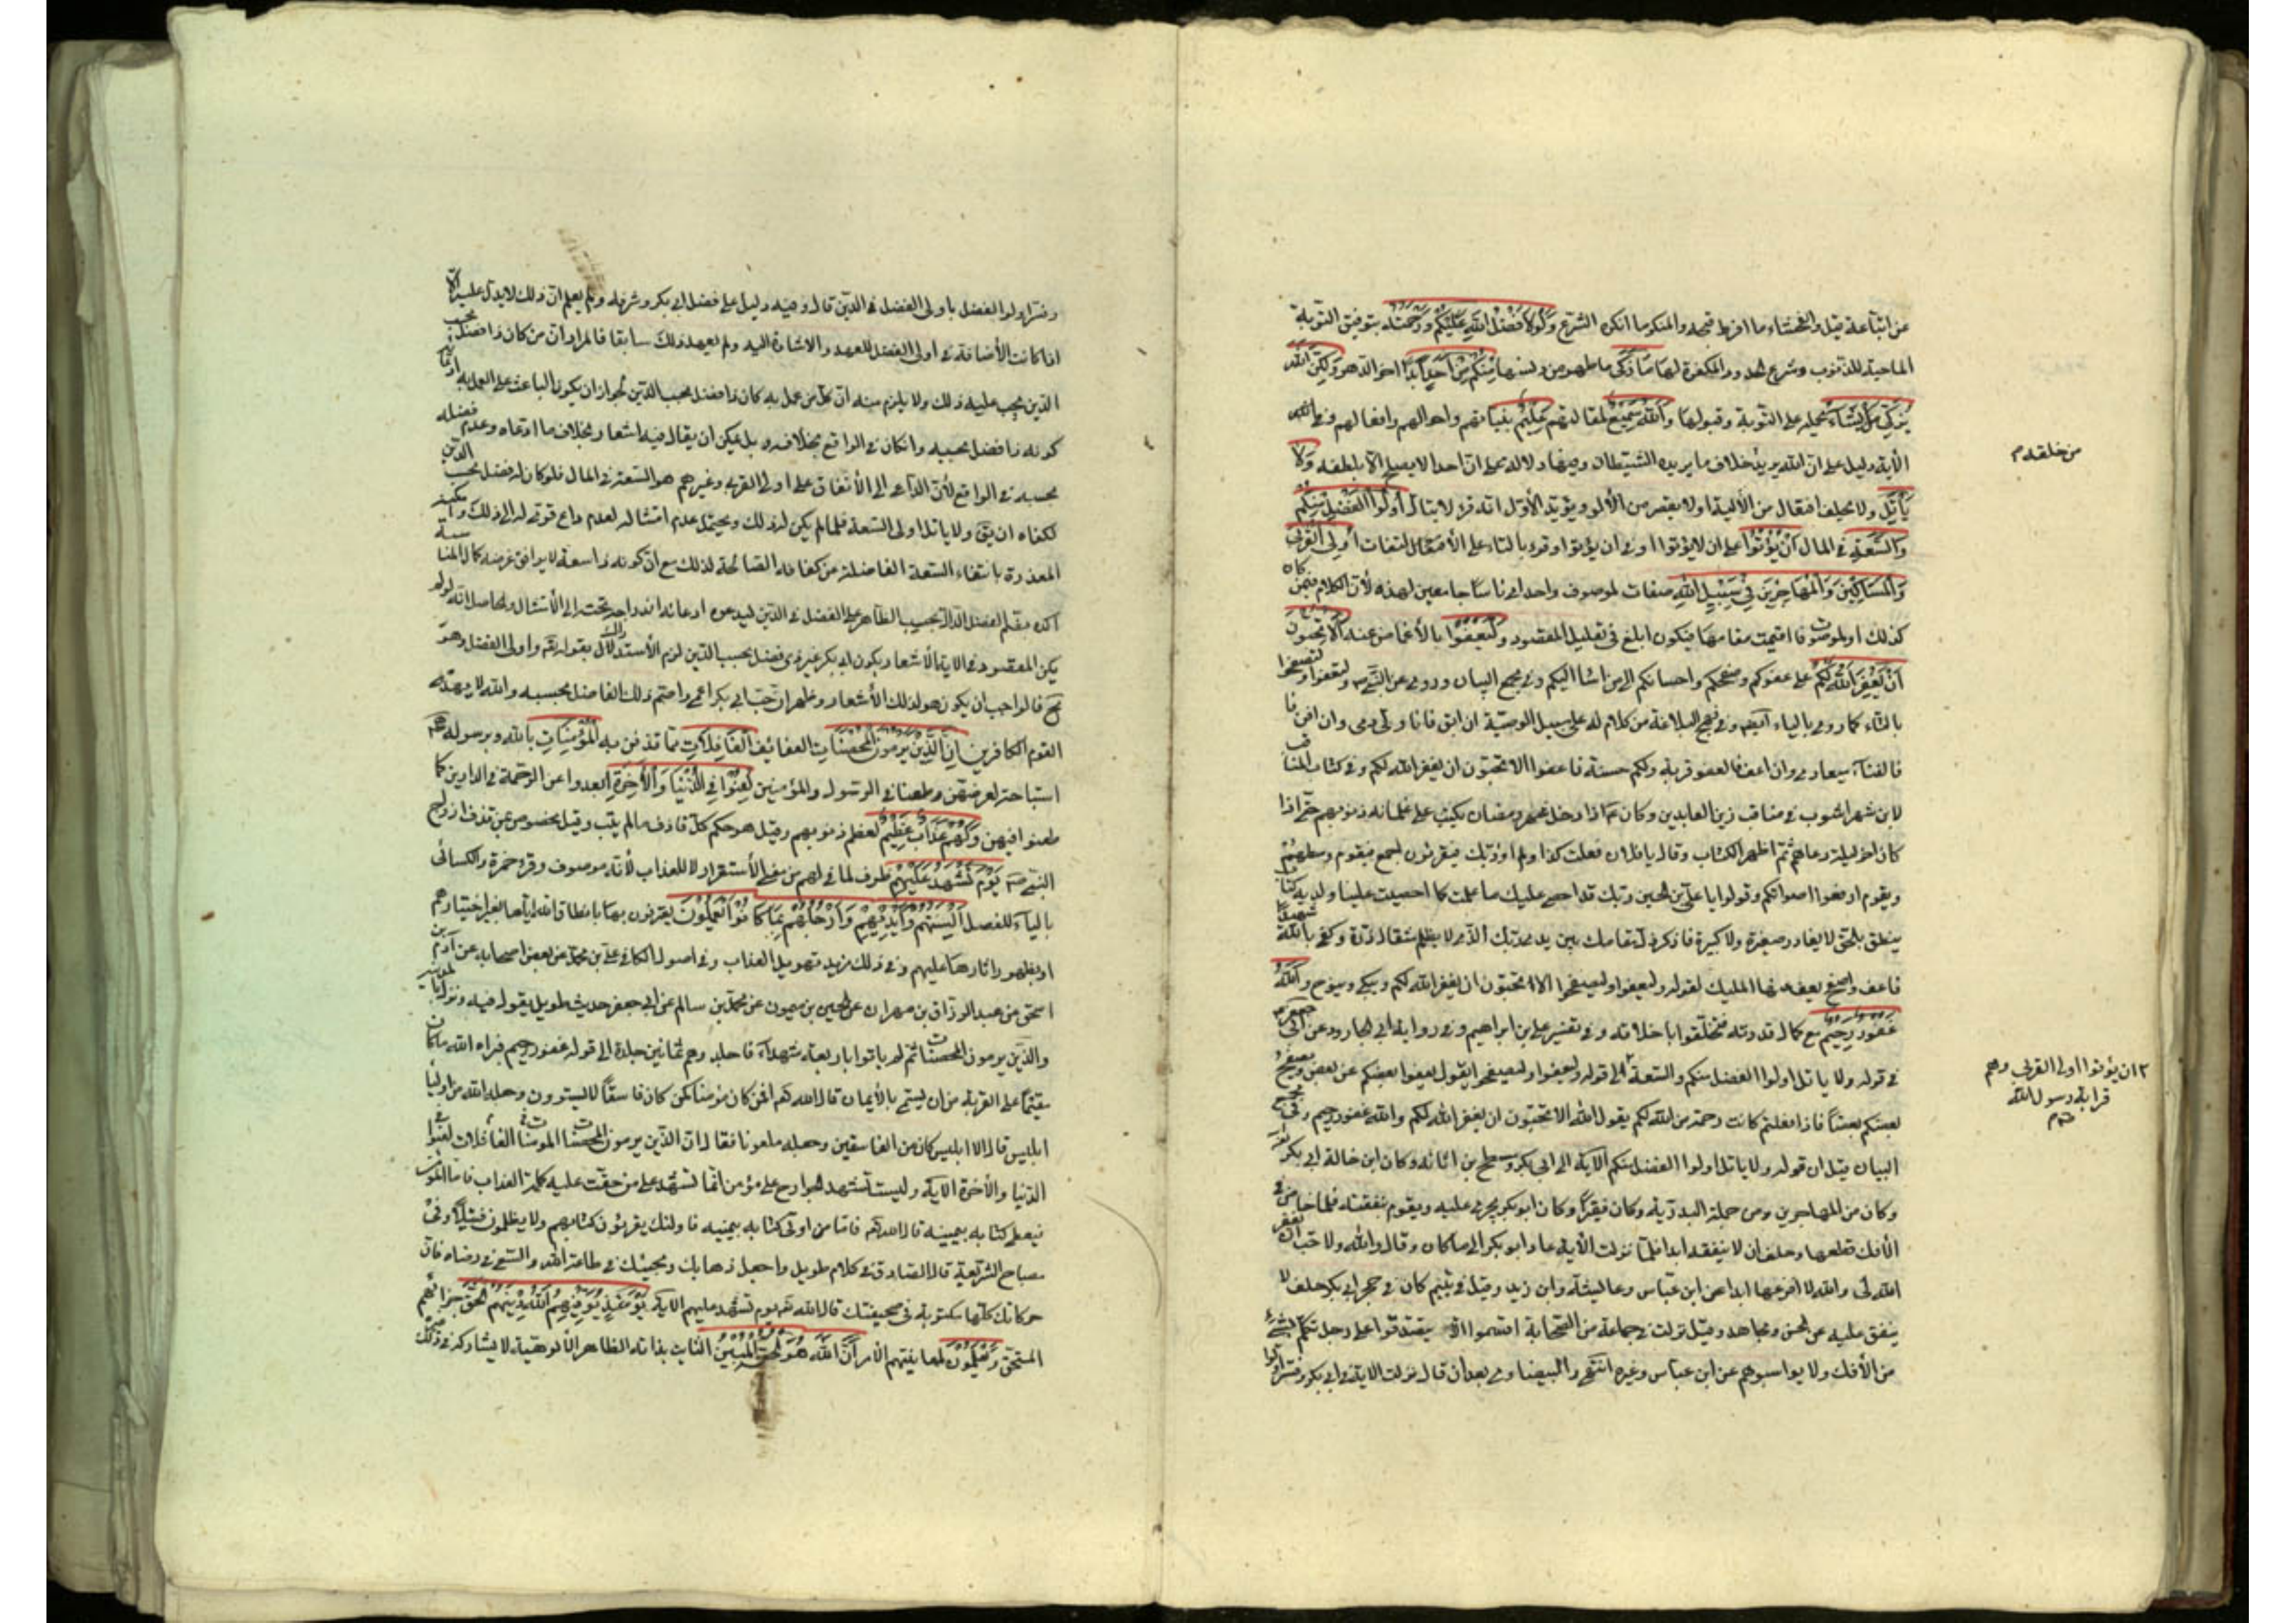 عن اتباعه قيل والفحشاء ما افرط قبحه والمنكر ما انكره الشرع وَلَوْلَا فَضْلُ اللَّهِ عَلَيْكُمْ وَرَحْمَتُهُ بتوفيق التوبة
الماحية للذنوب وشرع الحدود المكفرة لها مَا زَكَى ما طهر من دنسها مِنْكُمْ مِنْ أَحَدٍ أَبَدًا اخر الدهر وَلَكِنَّ اللَّهَ
يُزَكِّي مَنْ يَشَاءُ بحمله على التوبة وقبولها وَاللَّهُ سَمِيعٌ لمقالتهم عَلِيمٌ بنياتهم واحوالهم وافعالهم وفي
الآية دليل على ان الله يريد خلاف ما يريده الشيطان وفيها دلالة على ان احدا لا يصلح الا بلطفه وَلَا
يَأْتَلِ ولا يحلف افتعال من الألية او لا يقصر من الألو ويؤيد الأول انه قرء لا يتال أُولُوا الْفَضْلِ مِنْكُمْ
وَالسَّعَةِ في المال أَنْ يُؤْتُوا على ان لا يؤتوا او في ان يؤتوا وقرء بالتاء على الالتفات أُولِي الْقُرْبَى
وَالْمَسَاكِينَ وَالْمُهَاجِرِينَ فِي سَبِيلِ اللَّهِ صفات لموصوف واحد اي ناسا جامعين لهذه لأن الكلام فيمن كان
كذلك او لموصوفات اقيمت مقامها فيكون ابلغ في تعليل المقصود وَلْيَعْفُوا بالأغماض عنه أَلَا تُحِبُّونَ
أَنْ يَغْفِرَ اللَّهُ لَكُمْ على عفوكم وصفحكم واحسانكم الى من اساء اليكم وفي مجمع البيان وروي عن النبي ص ولتعفوا ولتصفحوا
بالتاء كما روي بالياء ايضا وفي نهج البلاغة من كلام له على سبيل الوصية ان ابق فانا ولي دمي وان افن فا
فالفناء ميعادي وان اعف فالعفو قربة ولكم حسنة فاعفوا الا تحبون ان يغفر الله لكم وفي كتاب المناقب
لابن شهراشوب في مناقب زين العابدين وكان ع اذا دخل شهر رمضان يكتب على غلمانه ذنوبهم حتى اذا
كان اخر ليلة دعاهم ثم اظهر الكتاب وقال يا فلان فعلت كذا ولم اؤذبك فيقرون اجمع فيقوم وسطهم
ويقوم ارفعوا اصواتكم وقولوا يا علي بن الحسين ربك قد احصى عليك ما عملت كما احصيت علينا ولديه كتاب
ينطق بالحق لا يغادر صغيرة ولا كبيرة فاذكر ذل مقامك بين يدي ربك الذي لا يظلم مثقال ذرة وكفى بالله شهيدا
فاعف واصفح يعف عنها المليك لقوله وليعفوا وليصفحوا الا تحبون ان يغفر الله لكم ويبكي وينوح وَاللَّهُ
غَفُورٌ رَحِيمٌ مع كمال قدرته فتخلقوا باخلاقه وفي تفسير علي بن ابراهيم وفي رواية ابي الجارود عن ابي جعفر ع
في قوله ولا ياتل اولوا الفضل منكم والسعة الى قوله وليعفوا وليصفحوا يقول يعفوا بعضكم عن بعض ويصفح
بعضكم بعضا فاذا فعلتم كانت رحمة من الله لكم يقول الله الا تحبون ان يغفر الله لكم والله غفور رحيم وفي مجمع
البيان قيل ان قوله ولا ياتل اولوا الفضل منكم الآية في ابي بكر ومسطح بن اثاثة وكان ابن خالة ابي بكر
وكان من المهاجرين ومن جملة البدرية وكان فقيرا وكان ابو بكر يجري عليه ويقوم بنفقته فلما خاض في
الأفك قطعها وحلف ان لا ينفعه ابدا فلما نزلت الآية عاد ابو بكر الى ما كان وقال والله اني لاحب ان يغفر
الله لي والله لا انزعها ابدا عن ابن عباس وعايشة وابن زيد وقيل في يتيم كان في حجر ابي بكر حلف لا
ينفق عليه عن الحسن ومجاهد وقيل نزلت في جماعة من الصحابة اقسموا الا يتصدقوا على رجل تكلم بشيء
من الأفك ولا يواسوهم عن ابن عباس وغيره انتهى والبيضاوي بعد ان قال نزلت الاية في ابي بكر وفسر اولوا
من خلقه م
ان يؤتوا اولى القربى وهم
قرابة رسول الله
ص م
وفسر اولوا الفضل باولى الفضل في الدين قال وفيه دليل على فضل ابي بكر وشرفه ولم يعلم ان ذلك لا يدل عليه الا
اذا كانت الأضافة في اولى الفضل للعهد والاشارة اليه ولم يعهد ذلك سابقا فالمراد ان من كان ذا فضل بحسب
الدين يجب عليه ذلك ولا يلزم منه ان كل من عمل به كان ذا فضل بحسب الدين لجواز ان يكون الباعث على العمل به
كونه ذا فضل بحسبه وان كان في الواقع بخلافه بل يمكن ان يقال فيه اشعار بخلاف ما ادعاه وعدم فضله
بحسبه في الواقع لأن الداعي الى الأنفاق على اولى القربى وغيرهم هو السعة في المال فلو كان له فضل بحسب الدين
لكفاه ان يق ولا ياتل اولى السعة فلما لم يكن له ذلك ويحتمل عدم امتثاله لعدم داع قوي له الى ذلك
المعذرة بانتفاء السعة الفاضلة من كفافه الصالحة لذلك مع ان كونه ذا سعة لا يوافق غرضه كمال المناسبة
اكده مقدم الفضل الدال بحسب الظاهر على الفضل في الدين ليدعي ادعائه اندراجه تحته الى الأمتثال والحاصل انه لو لم
يكن المقصود في الاية الأشعار بكون ابي بكر غير ذي فضل بحسب الدين لزم الأستدلال بقوله تع واولى الفضل وهو
تع فالواجب ان يكون هو لذلك الأشعار وظهر ان حب ابي بكر اعمى واصم ذلك الفاضل بحسبه والله لا يهدي
القوم الكافرين إِنَّ الَّذِينَ يَرْمُونَ الْمُحْصَنَاتِ العفائف الْغَافِلَاتِ مما قذفن به الْمُؤْمِنَاتِ بالله وبرسوله
استباحة لعرضهن وطعنا في الرسول والمؤمنين لُعِنُوا فِي الدُّنْيَا وَالْآخِرَةِ ابعدوا عن الرحمة في الدارين كما
طعنوا فيهن وَلَهُمْ عَذَابٌ عَظِيمٌ لعظم ذنوبهم وقيل هو حكم كل قاذف ما لم يتب وقيل مخصوص بمن قذف ازواج
النبي ص يَوْمَ تَشْهَدُ عَلَيْهِمْ ظرف لما في لهم من معنى الأستقرار لا للعذاب لأنه موصوف وقرء حمزة والكسائي
بالياء للفصل أَلْسِنَتُهُمْ وَأَيْدِيهِمْ وَأَرْجُلُهُمْ بِمَا كَانُوا يَعْمَلُونَ يعترفون بها بانطاق الله اياها بغير اختيارهم
او بظهور اثارها عليهم وفي ذلك مزيد تهويل للعذاب وفي اصول الكافي علي بن محمد عن بعض اصحابه عن آدم بن
اسحق عن عبد الرزاق بن مهران عن الحسين بن ميمون عن محمد بن سالم عن ابي جعفر حديث طويل يقول فيه ونزل بالمدينة
والذين يرمون المحصنات ثم لم ياتوا باربعة شهداء فاجلدوهم ثمانين جلدة الى قوله غفور رحيم فبراه الله ما كان
مقيما على الفرية من ان يسمى بالأيمان قال الله تع افمن كان مؤمنا كمن كان فاسقا لا يستوون وجعله الله من اولياء
ابليس قال الا ابليس كان من الفاسقين وجعله ملعونا فقال ان الذين يرمون المحصنات المؤمنات الغافلات لعنوا في
الدنيا والأخرة الآية وليست تشهد الجوارح على مؤمن انما تشهد على من حقت عليه كلمة العذاب فاما المؤمن
فيعطى كتابه بيمينه قال الله تع فاما من اوتي كتابه بيمينه فاولئك يقرؤن كتابهم ولا يظلمون فتيلا وفي
مصباح الشريعة قال الصادق في كلام طويل واجعل ذهابك ومجيئك في طاعة الله والسعي في رضاه فان
حركاتك كلها مكتوبة في صحيفتك قال الله تع يوم تشهد عليهم الآية يَوْمَئِذٍ يُوَفِّيهِمُ اللَّهُ دِينَهُمُ الْحَقَّ جزائهم
المستحق وَيَعْلَمُونَ لمعاينتهم الأمر أَنَّ اللَّهَ هُوَ الْحَقُّ الْمُبِينُ الثابت بذاته الظاهر الألوهية لا يشاركه في ذلك